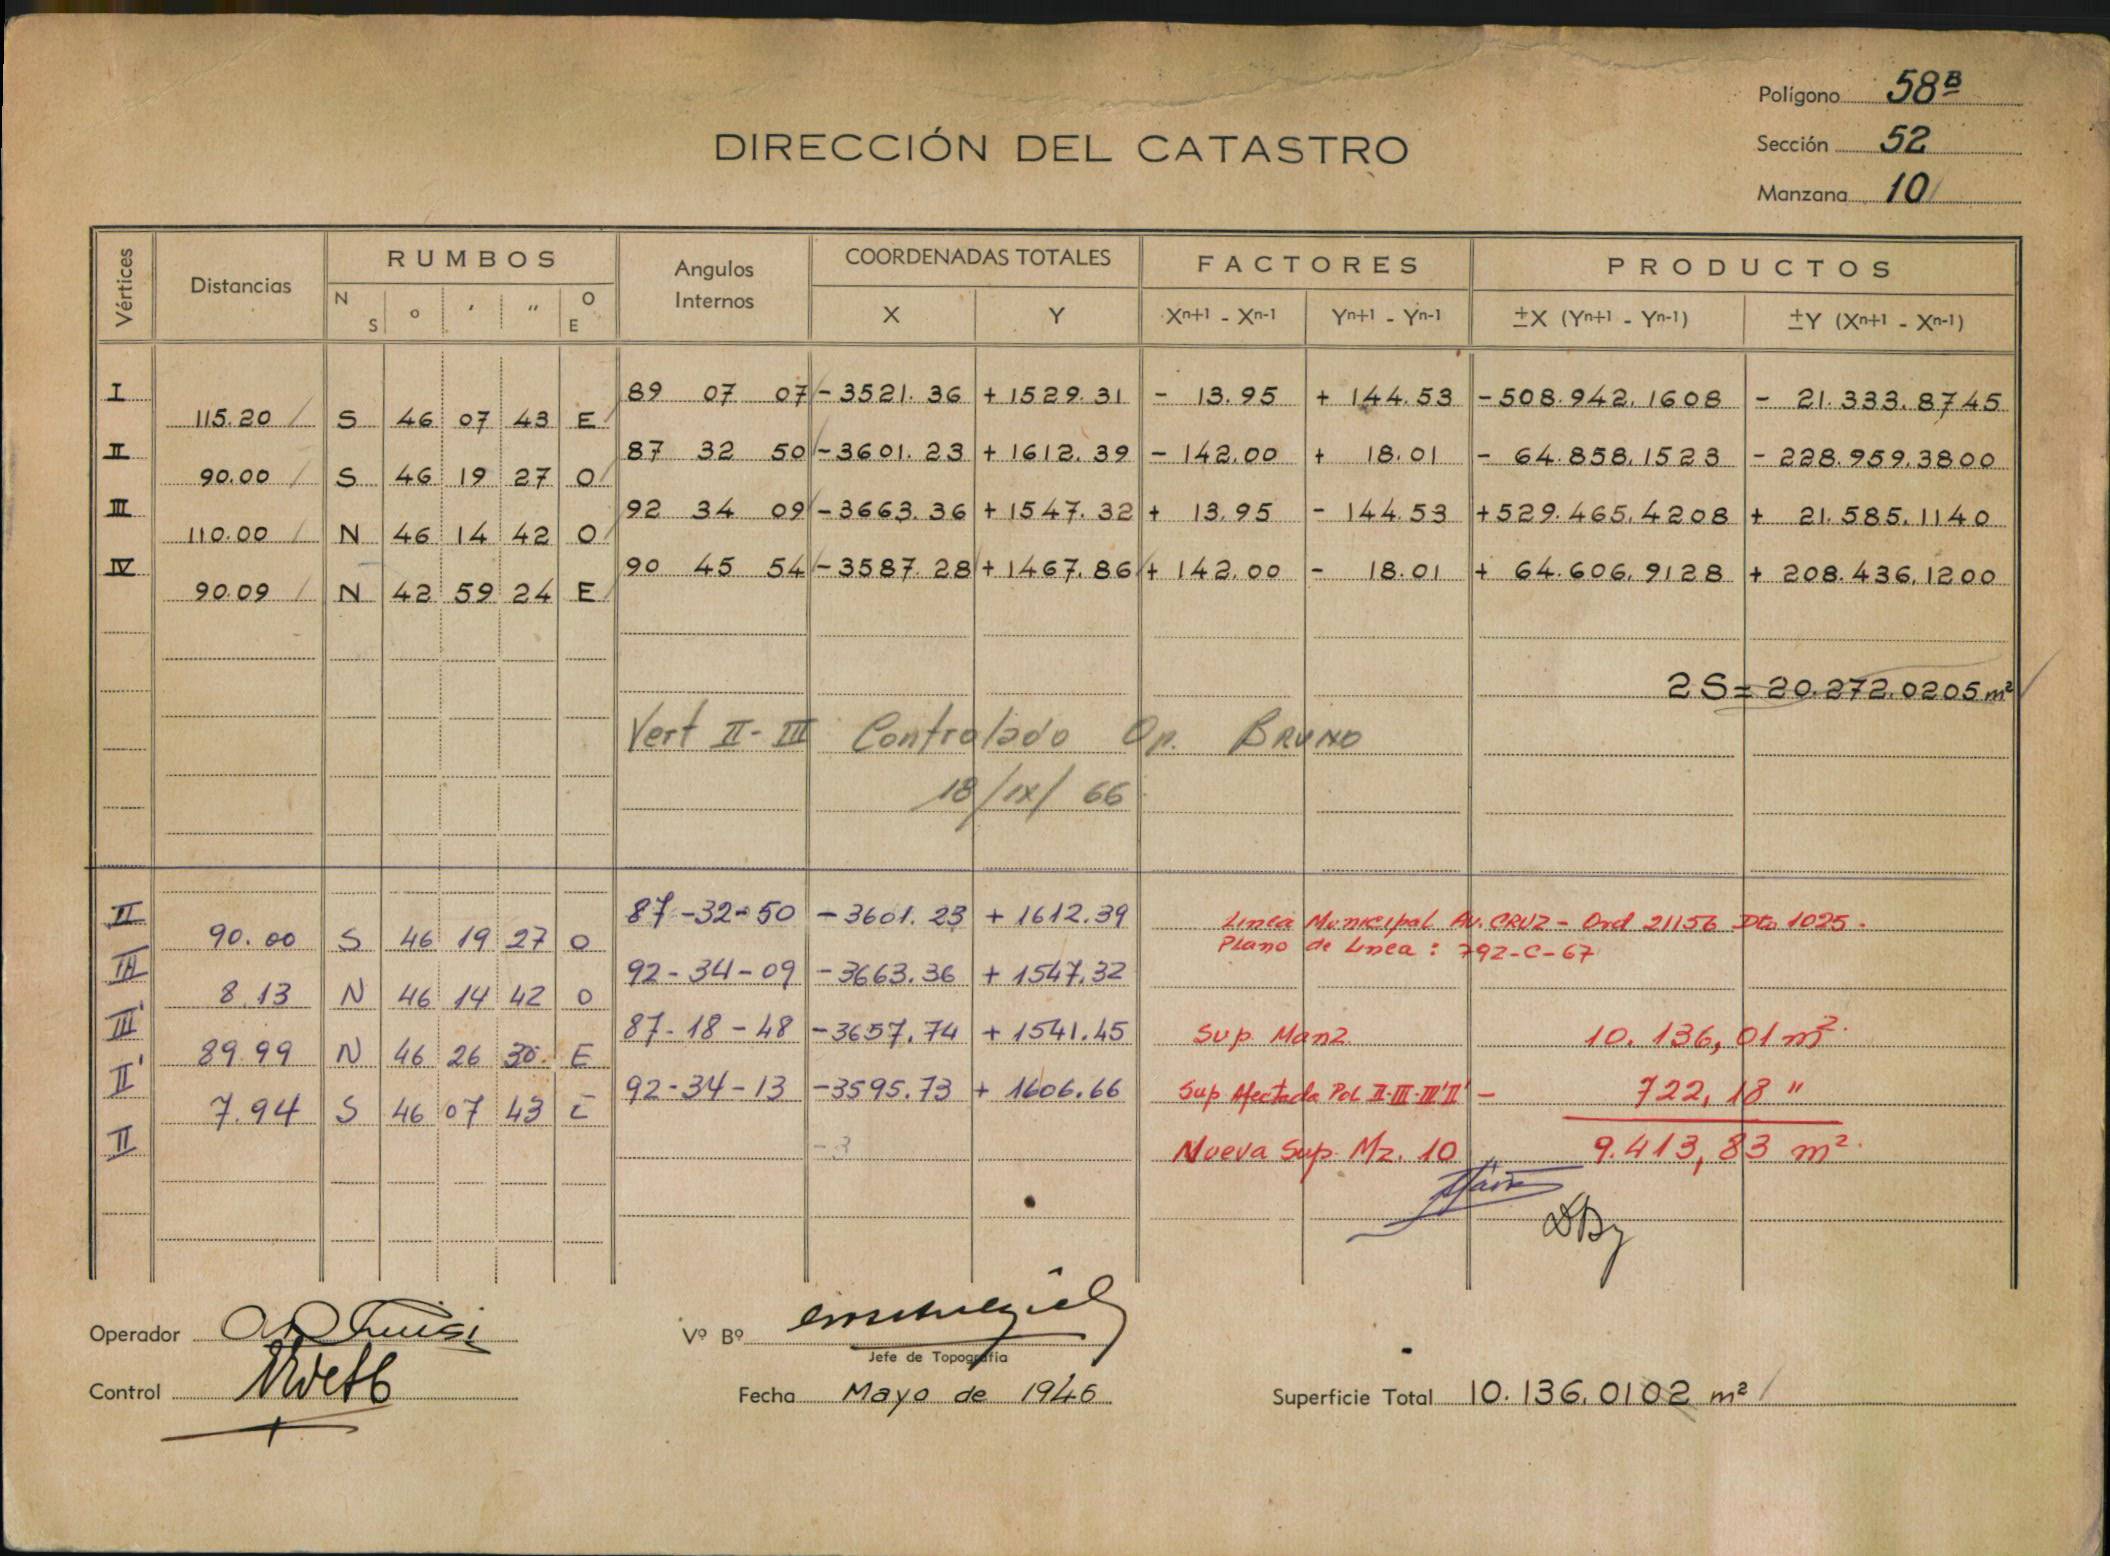 Polígono 58B
DIRECCIÓN DEL CATASTRO
Sección 52
Manzana 10
Vértices Distancias RUMBOS Angulos Internos COORDENADAS TOTALES FACTORES PRODUCTOS
N S o ' " O E X Y Xn+1 - Xn-1 Yn+1 - Yn-1 ±X (Yn+1 - Yn-1) ±Y (Xn+1 - Xn-1)
I 89 07 07 - 3521.36 + 1529.31 - 13.95 + 144.53 - 508.942.1608 - 21.333.8745
115.20 S 46 07 43 E
II 87 32 50 - 3601.23 + 1612.39 - 142.00 + 18.01 - 64.858.1523 - 228.959.3800
90.00 S 46 19 27 O
III 92 34 09 - 3663.36 + 1547.32 + 13.95 - 144.53 + 529.465.4208 + 21.585.1140
110.00 N 46 14 42 O
IV 90 45 54 - 3587.28 + 1467.86 + 142.00 - 18.01 + 64.606.9128 + 208.436.1200
90.09 N 42 59 24 E
2S = 20.272.0205 m²
Vert II - III Controlado Op. BRUNO
18/IX/66
II 87-32-50 - 3601.23 + 1612.39 Linea Municipal Av. CRUZ - Ord 21156 Dto 1025.
90.00 S 46 19 27 O Plano de Linea: 792-C-67
III 92-34-09 - 3663.36 + 1547.32
8.13 N 46 14 42 O
III' 87-18-48 - 3657.74 + 1541.45 Sup. Manz. 10.136,01 m².
89.99 N 46 26 30 E
II' 92-34-13 - 3595.73 + 1606.66 Sup Afectada Pol. II-III-III'II' - 722,18 "
7.94 S 46 07 43 E
II - 3 Nueva Sup. Mz. 10 9.413,83 m².
Operador
Vº Bº
Jefe de Topografía
Control
Fecha Mayo de 1946
Superficie Total 10.136.0102 m²